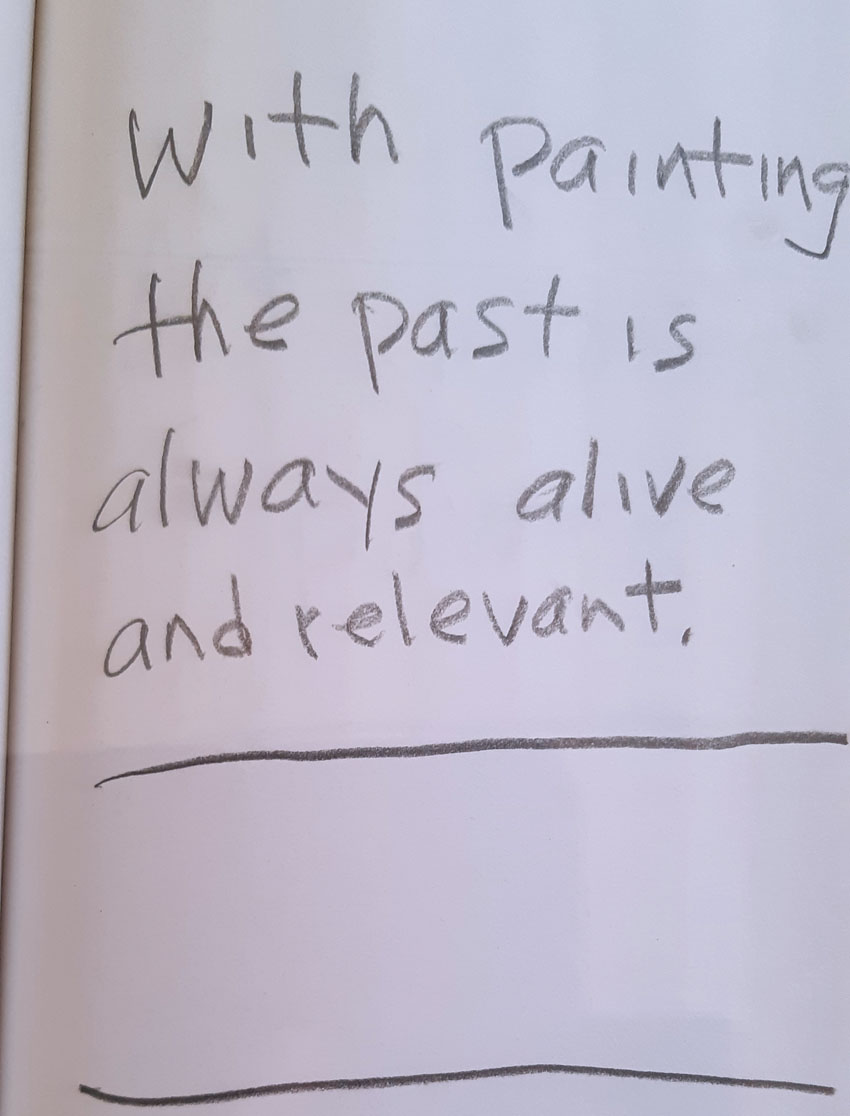 With painting
the past is
always alive
and relevant.